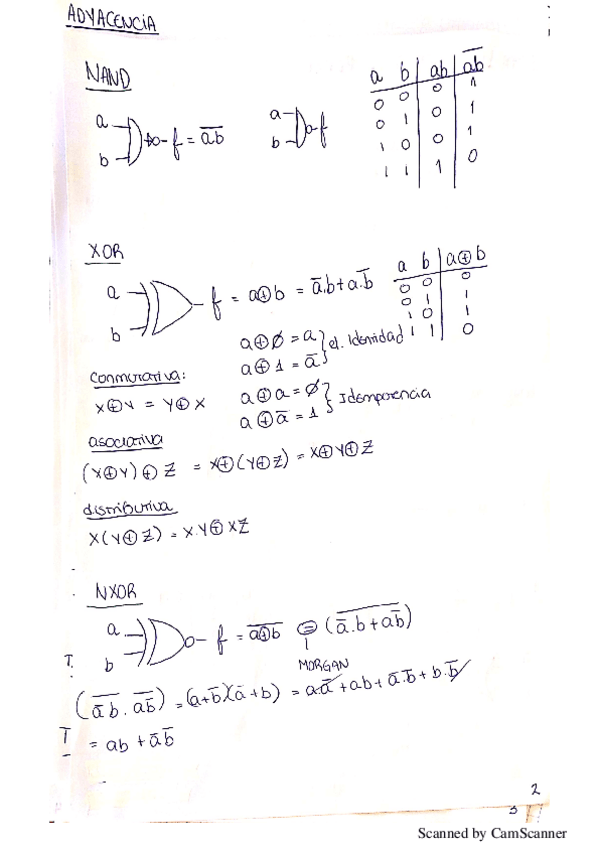 ADYACENCIA
NAND
a
b
f = \overline{ab}
a
b
f
a b | ab | \overline{ab}
0 0 | 0 | 1
0 1 | 0 | 1
1 0 | 0 | 1
1 1 | 1 | 0
XOR
a
b
f = a⊕b = \overline{a}.b+a.\overline{b}
a b | a⊕b
0 0 | 0
0 1 | 1
1 0 | 1
1 1 | 0
a⊕∅ = a
a⊕1 = \overline{a}
} el. Identidad
Conmutativa:
X⊕Y = Y⊕X
a⊕a = ∅
a⊕\overline{a} = 1
} Idempotencia
asociativa
(X⊕Y)⊕Z = X⊕(Y⊕Z) = X⊕Y⊕Z
distributiva
X(Y⊕Z) = X.Y⊕XZ
NXOR
a
b
f = \overline{a⊕b} = (\overline{\overline{a}.b+a\overline{b}})
T.
MORGAN
(\overline{\overline{a}b}.\overline{a\overline{b}}) = (a+\overline{b})(\overline{a}+b) = a.\overline{a}+ab+\overline{a}.\overline{b}+b.\overline{b}
T
= ab+\overline{a}\overline{b}
2
3
Scanned by CamScanner